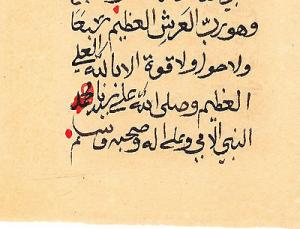 وهو رب العرش العظيم ربعا
ولا حول ولا قوة الا بالله العلي
العظيم وصلى الله على سيدنا محمد
النبي الامي وعلى اله وصحبه وسلم